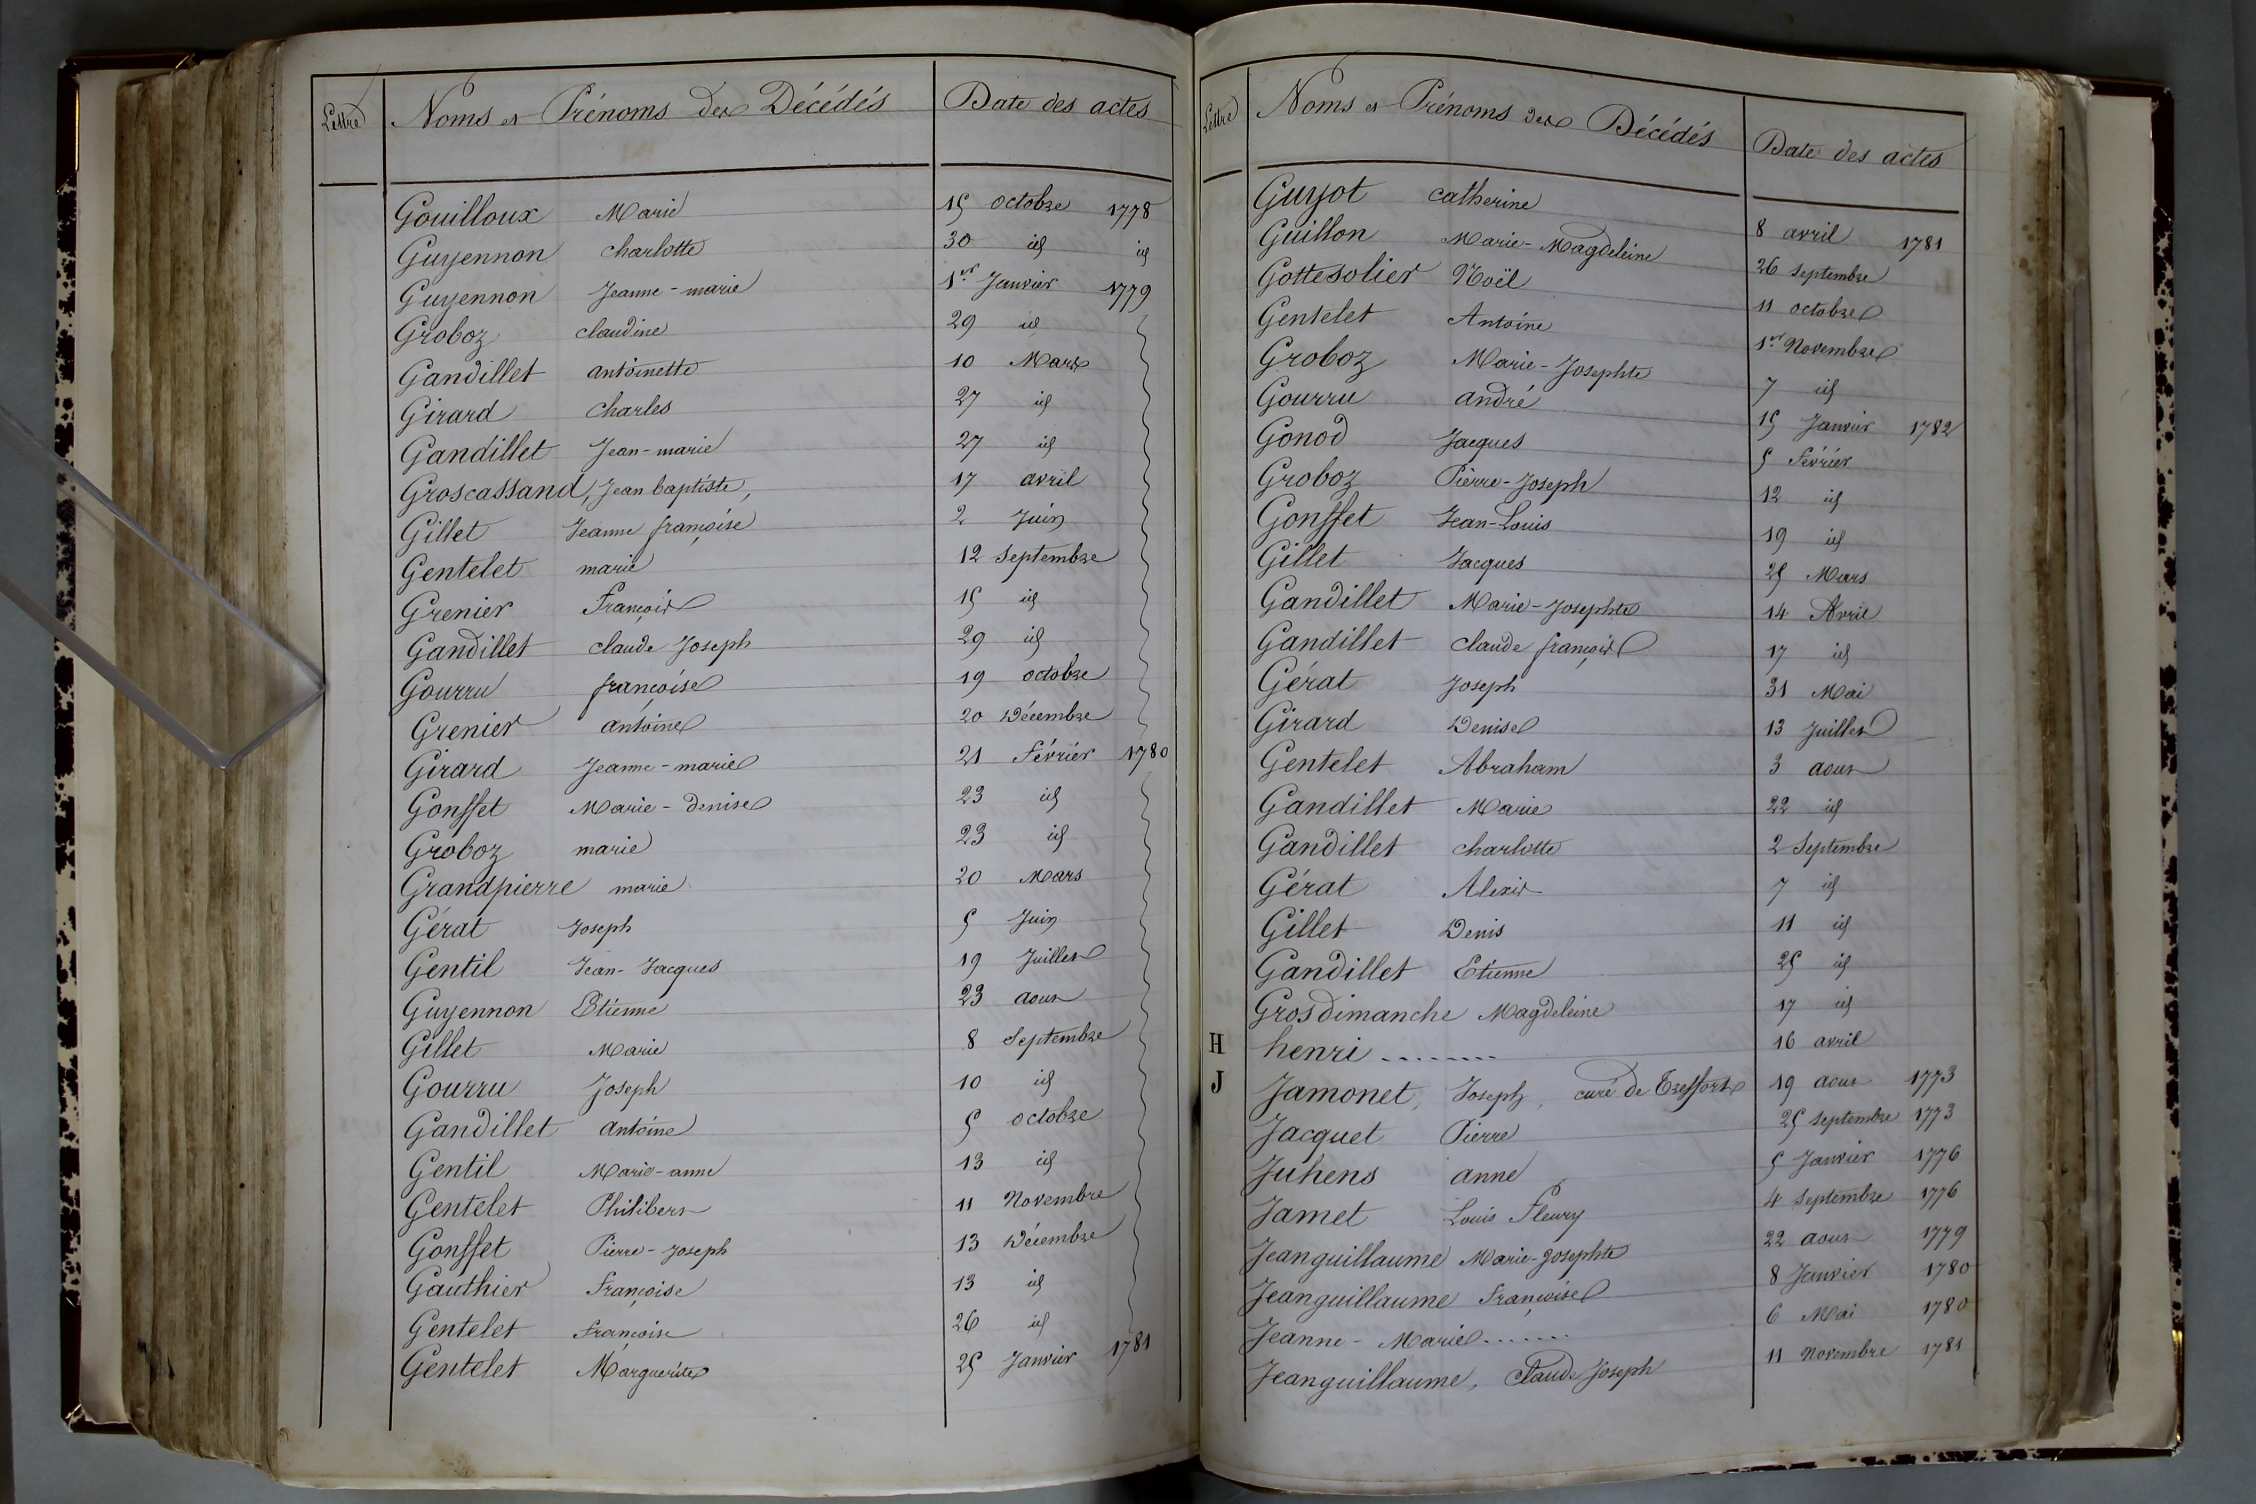 Lettre Noms et Prénoms des Décédés Date des actes
Gouilloux Marie 15 octobre 1778
Guyennon charlotte 30 id id
Guyennon Jeanne-marie 1er Janvier 1779
Groboz claudine 29 id
Gandillet antoinette 10 Mars
Girard charles 27 id
Gandillet Jean-marie 27 id
Groscassand, Jean baptiste, 17 avril
Gillet Jeanne françoise 2 Juin
Gentelet marie 12 Septembre
Grenier François 15 id
Gandillet claude Joseph 29 id
Gourru françoise 19 octobre
Grenier antoine 20 Décembre
Girard Jeanne-marie 21 Février 1780
Gonsset Marie-denise 23 id
Groboz marie 23 id
Grandpierre marie 20 Mars
Gérat Joseph 5 Juin
Gentil Jean-Jacques 19 Juillet
Guyennon Etienne 23 aout
Gillet Marie 8 Septembre
Gourru Joseph 10 id
Gandillet antoine 5 octobre
Gentil Marie-anne 13 id
Gentelet Philibert 11 Novembre
Gonsset Pierre-Joseph 13 Décembre
Gauthier Françoise 13 id
Gentelet françoise 26 id
Gentelet Marguerite 25 Janvier 1781
Lettre Noms et Prénoms des Décédés Date des actes
Guyot catherine 8 avril 1781
Guillon Marie-Magdeleine 26 Septembre
Gottesolier Noël 11 octobre
Gentelet Antoine 1er Novembre
Groboz Marie-Josephte 7 id
Gourru andré 15 Janvier 1782
Gonod Jacques 5 Février
Groboz Pierre-Joseph 12 id
Gonsset Jean-Louis 19 id
Gillet Jacques 25 Mars
Gandillet Marie-Josephte 14 Avril
Gandillet claude françois 17 id
Gérat Joseph 31 Mai
Girard Denise 13 Juillet
Gentelet Abraham 3 aout
Gandillet Marie 22 id
Gandillet charlotte 2 Septembre
Gérat Alexis 7 id
Gillet Denis 11 id
Gandillet Etienne 25 id
Grosdimanche Magdeleine 17 id
H henri ........ 16 avril
J Jamonet, Joseph, curé de Treffort 19 aout 1773
Jacquet Pierre 25 Septembre 1773
Juhens anne 5 Janvier 1776
Jamet Louis Fleury 4 Septembre 1776
Jeanguillaume Marie-Josephte 22 aout 1779
Jeanguillaume Françoise 8 Janvier 1780
Jeanne-Marie ....... 6 Mai 1780
Jeanguillaume, Claude Joseph 11 Novembre 1781